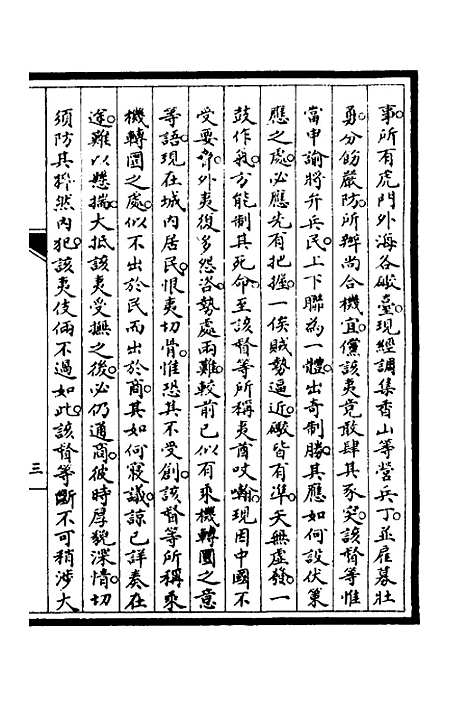 事所有虎門外海各礮臺現經調集香山等營兵丁並雇募壯
勇分飭嚴防所辦尚合機宜儻該夷竟敢肆其豕突該督等惟
當申諭將弁兵民上下聯為一體出奇制勝其應如何設伏策
應之處必應先有把握一俟賊勢逼近礮皆有準矢無虛發一
鼓作氣方能制其死命至該督等所稱夷酋㗎喲現因中國不
受要脅外夷復多怨咨勢處兩難較前已似有乘機轉圜之意
等語現在城內居民恨夷切骨惟恐其不受創該督等所稱乘
機轉圜之處似不出於民而出於商其如何寢議諒已詳奏在
途難以懸揣大抵該夷受撫之後必仍通商彼時厚貌深情切
須防其猝然內犯該夷伎倆不過如此該督等斷不可稍涉大
三